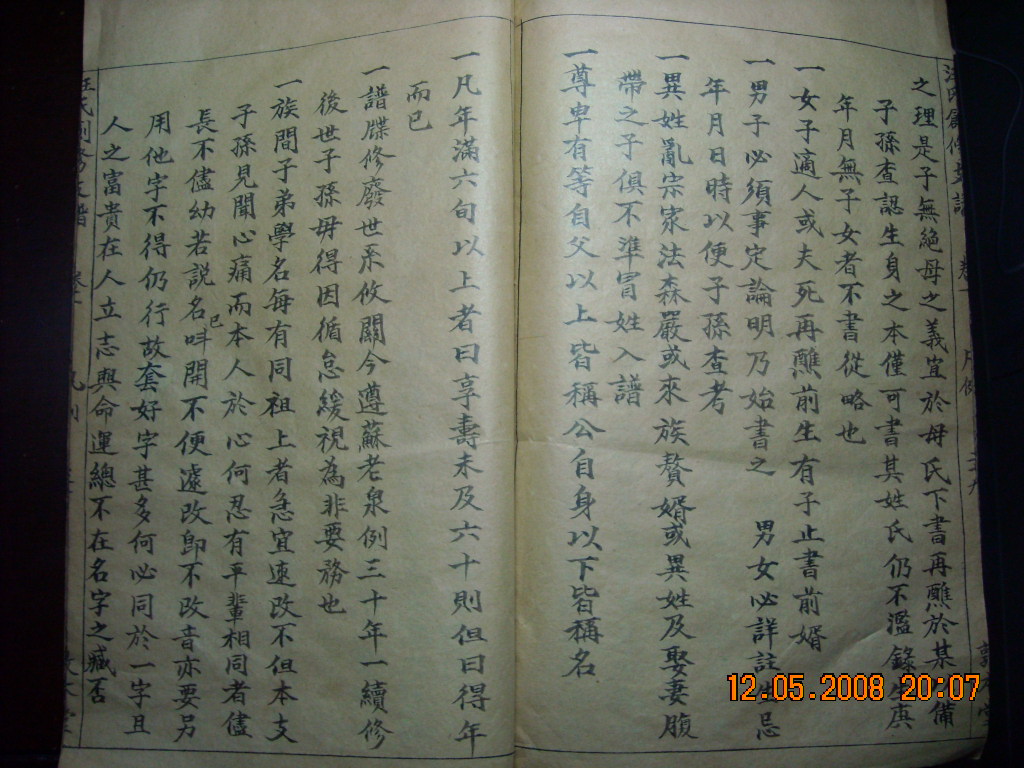 之理是子無絕母之義宜於母氏下書再醮於某備
子孫查認生身之本僅可書其姓氏仍不濫錄生庚
年月無子女者不書從略也
一女子適人或夫死再醮前生有子止書前婿
一男子必須事定論明乃始書之 男女必詳註生忌
年月日時以便子孫查考
一異姓亂宗家法森嚴或來族贅婿或異姓及娶妻腹
帶之子俱不準冒姓入譜
一尊卑有等自父以上皆稱公自身以下皆稱名
一凡年滿六旬以上者曰享壽未及六十則但曰得年
而已
一譜牒修廢世系攸關今遵蘇老泉例三十年一續修
後世子孫毋得因循怠緩視為非要務也
一族間子弟學名每有同祖上者急宜速改不但本支
子孫見聞心痛而本人於心何忍有平輩相同者儘
長不儘幼若説名已呌開不便遽改卽不改音亦要另
用他字不得仍行故套好字甚多何必同於一字且
人之富貴在人立志與命運總不在名字之臧否
12.05.2008 20:07